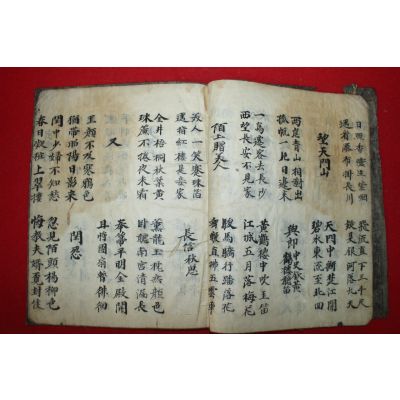 日照香爐生紫烟
遙看瀑布掛長川
飛流直下三千尺
疑是銀河落九天
望天門山
天門中斷楚江開
碧水東流至北回
兩岸青山相對出
孤帆一片日邊來
與郎中史欽黃
鶴樓聽笛
一爲遷客去長沙
西望長安不見家
黃鶴樓中吹玉笛
江城五月落梅花
陌上贈美人
駿馬驕行踏落花
垂鞭直拂五雲車
美人一笑褰珠箔
遙指紅樓是妾家
長信秋思
金井梧桐秋葉黃
珠簾不捲夜來霜
熏籠玉枕無顏色
臥聽南宮清漏長
又
奉箒平明金殿開
且將團扇暫徘徊
玉顏不及寒鴉色
猶帶昭陽日影來
閨怨
閨中少婦不知愁
春日凝粧上翠樓
忽見陌頭楊柳色
悔教夫婿覓封侯